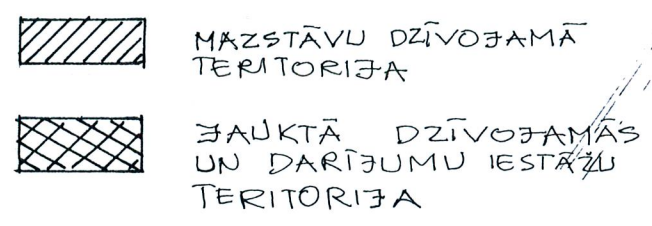 MAZSTĀVU DZĪVOJAMĀ
TERITORIJA
JAUKTĀ DZĪVOJAMĀS
UN DARĪJUMU IESTĀŽU
TERITORIJA